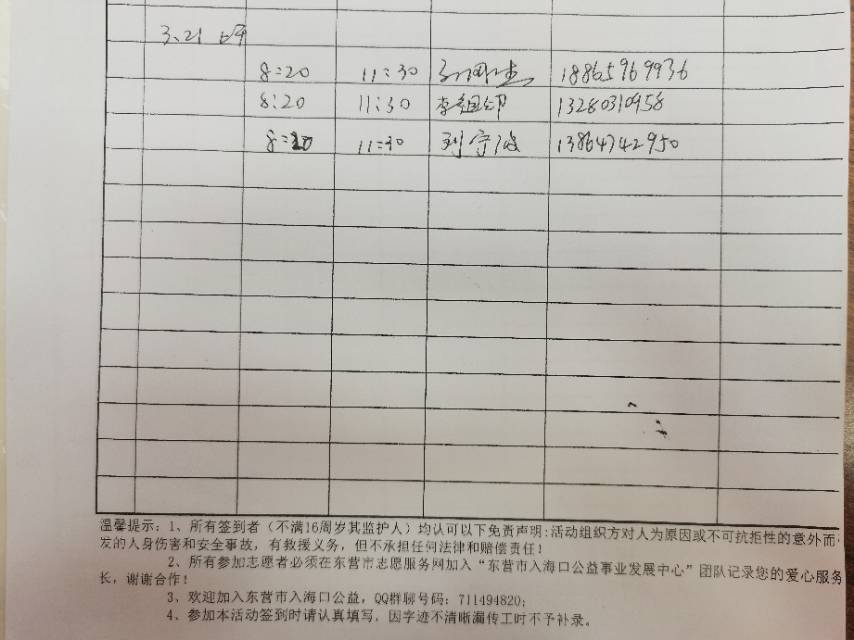 3、21
8:20 11:30 18865969936
8:20 11:30 李 13280310958
8:20 11:30 刘守波 13864742950
温馨提示：1、所有签到者（不满16周岁其监护人）均认可以下免责声明:活动组织方对人为原因或不可抗拒性的意外而
发的人身伤害和安全事故，有救援义务，但不承担任何法律和赔偿责任！
2、所有参加志愿者必须在东营市志愿服务网加入“东营市入海口公益事业发展中心”团队记录您的爱心服务
长，谢谢合作！
3、欢迎加入东营市入海口公益，QQ群聊号码：711494820；
4、参加本活动签到时请认真填写，因字迹不清晰漏传工时不予补录。